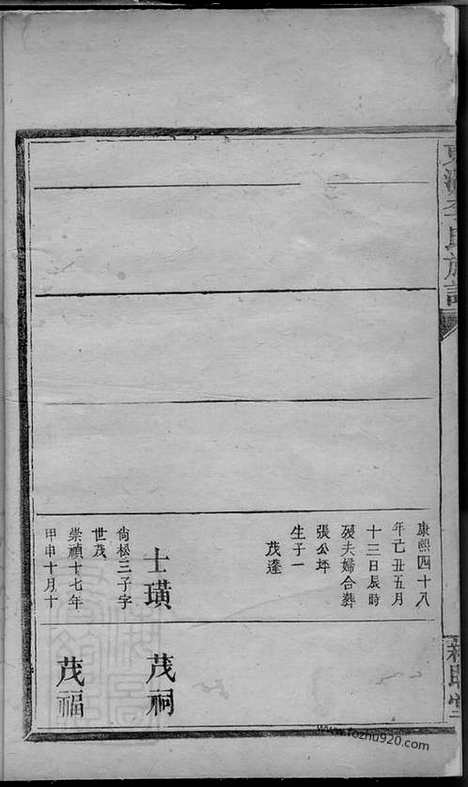 李氏族譜
康熙四十八
年己丑五月
十三日辰時
歿夫婦合葬
張公坪
生子一
茂蓬
士璜
尙松三子字
世茂
崇禎十七年
甲申十月十
茂祠
茂福
www.fozhu920.com